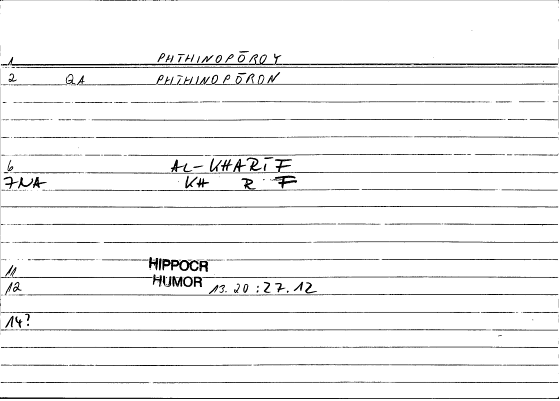 1 PHTHINOPŌROY
2 QA PHTHINOPŌRON
6 AL-KHARĪF
7NA KH R F
11 HIPPOCR
12 HUMOR 13.20:27.12
14?